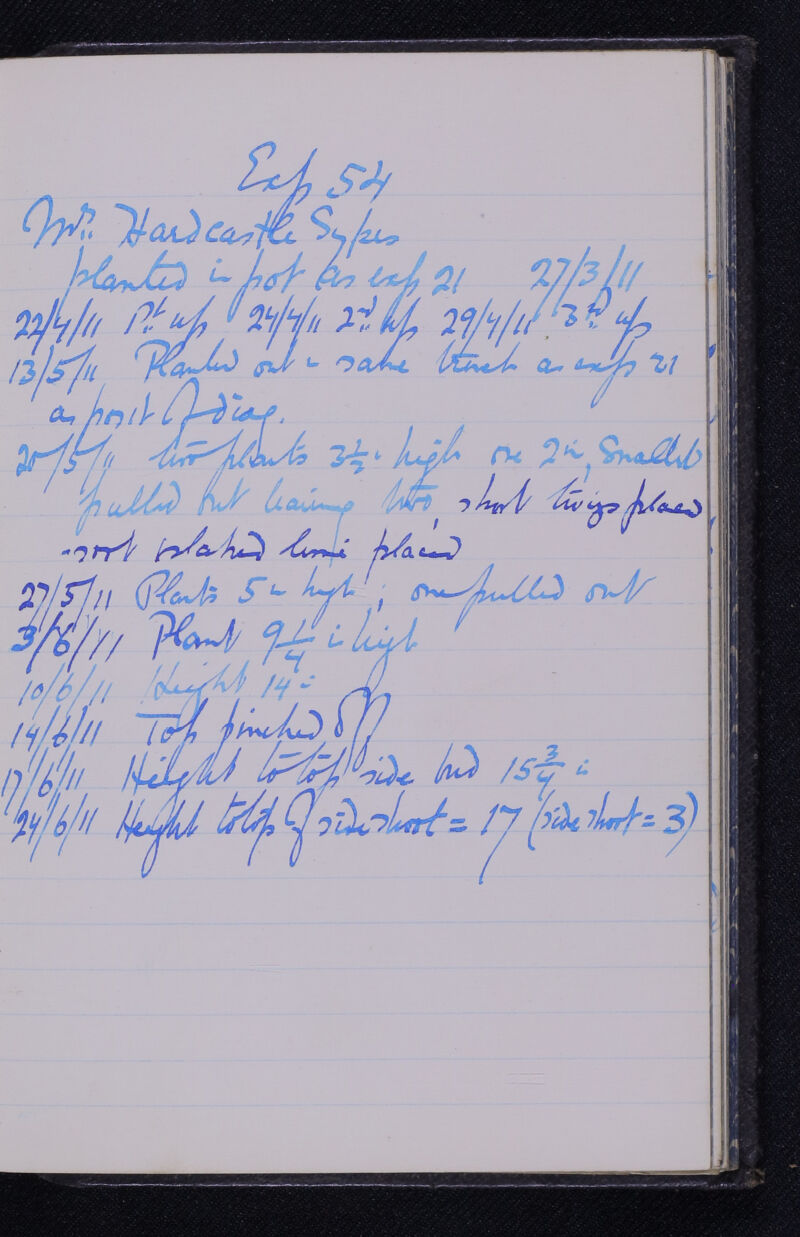 Exp 54
Mrs. Hardcastle Sykes
planted in pot as exp 21 27/3/11
22/4/11 1st up 24/4/11 2nd up 29/4/11 3rd up
13/5/11 Planted out in same trench as exp 21
as posit of diag.
20/5/11 two plants 3½in high one 2in, Smallest
pulled out leaving two short twigs placed
soot slaked lime placed
27/5/11 Plants 5in high; one pulled out
3/6/11 Plant 9¼ in high
10/6/11 Height 14in
14/6/11 Top pinched off
17/6/11 Height to top side bud 15¾ in
24/6/11 Height to top of side shoot = 17 (side shoot = 3)